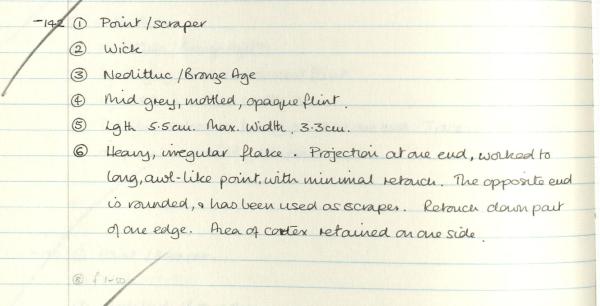 -142 ① Point/scraper
② Wick
③ Neolithic/Bronze Age
④ Mid grey, mottled, opaque flint.
⑤ Lgth 5.5cm. Max. Width, 3.3cm.
⑥ Heavy, irregular flake. Projection at one end, worked to
long, awl-like point, with minimal retouch. The opposite end
is rounded, & has been used as scraper. Retouch down part
of one edge. Area of cortex retained on one side.
⑧